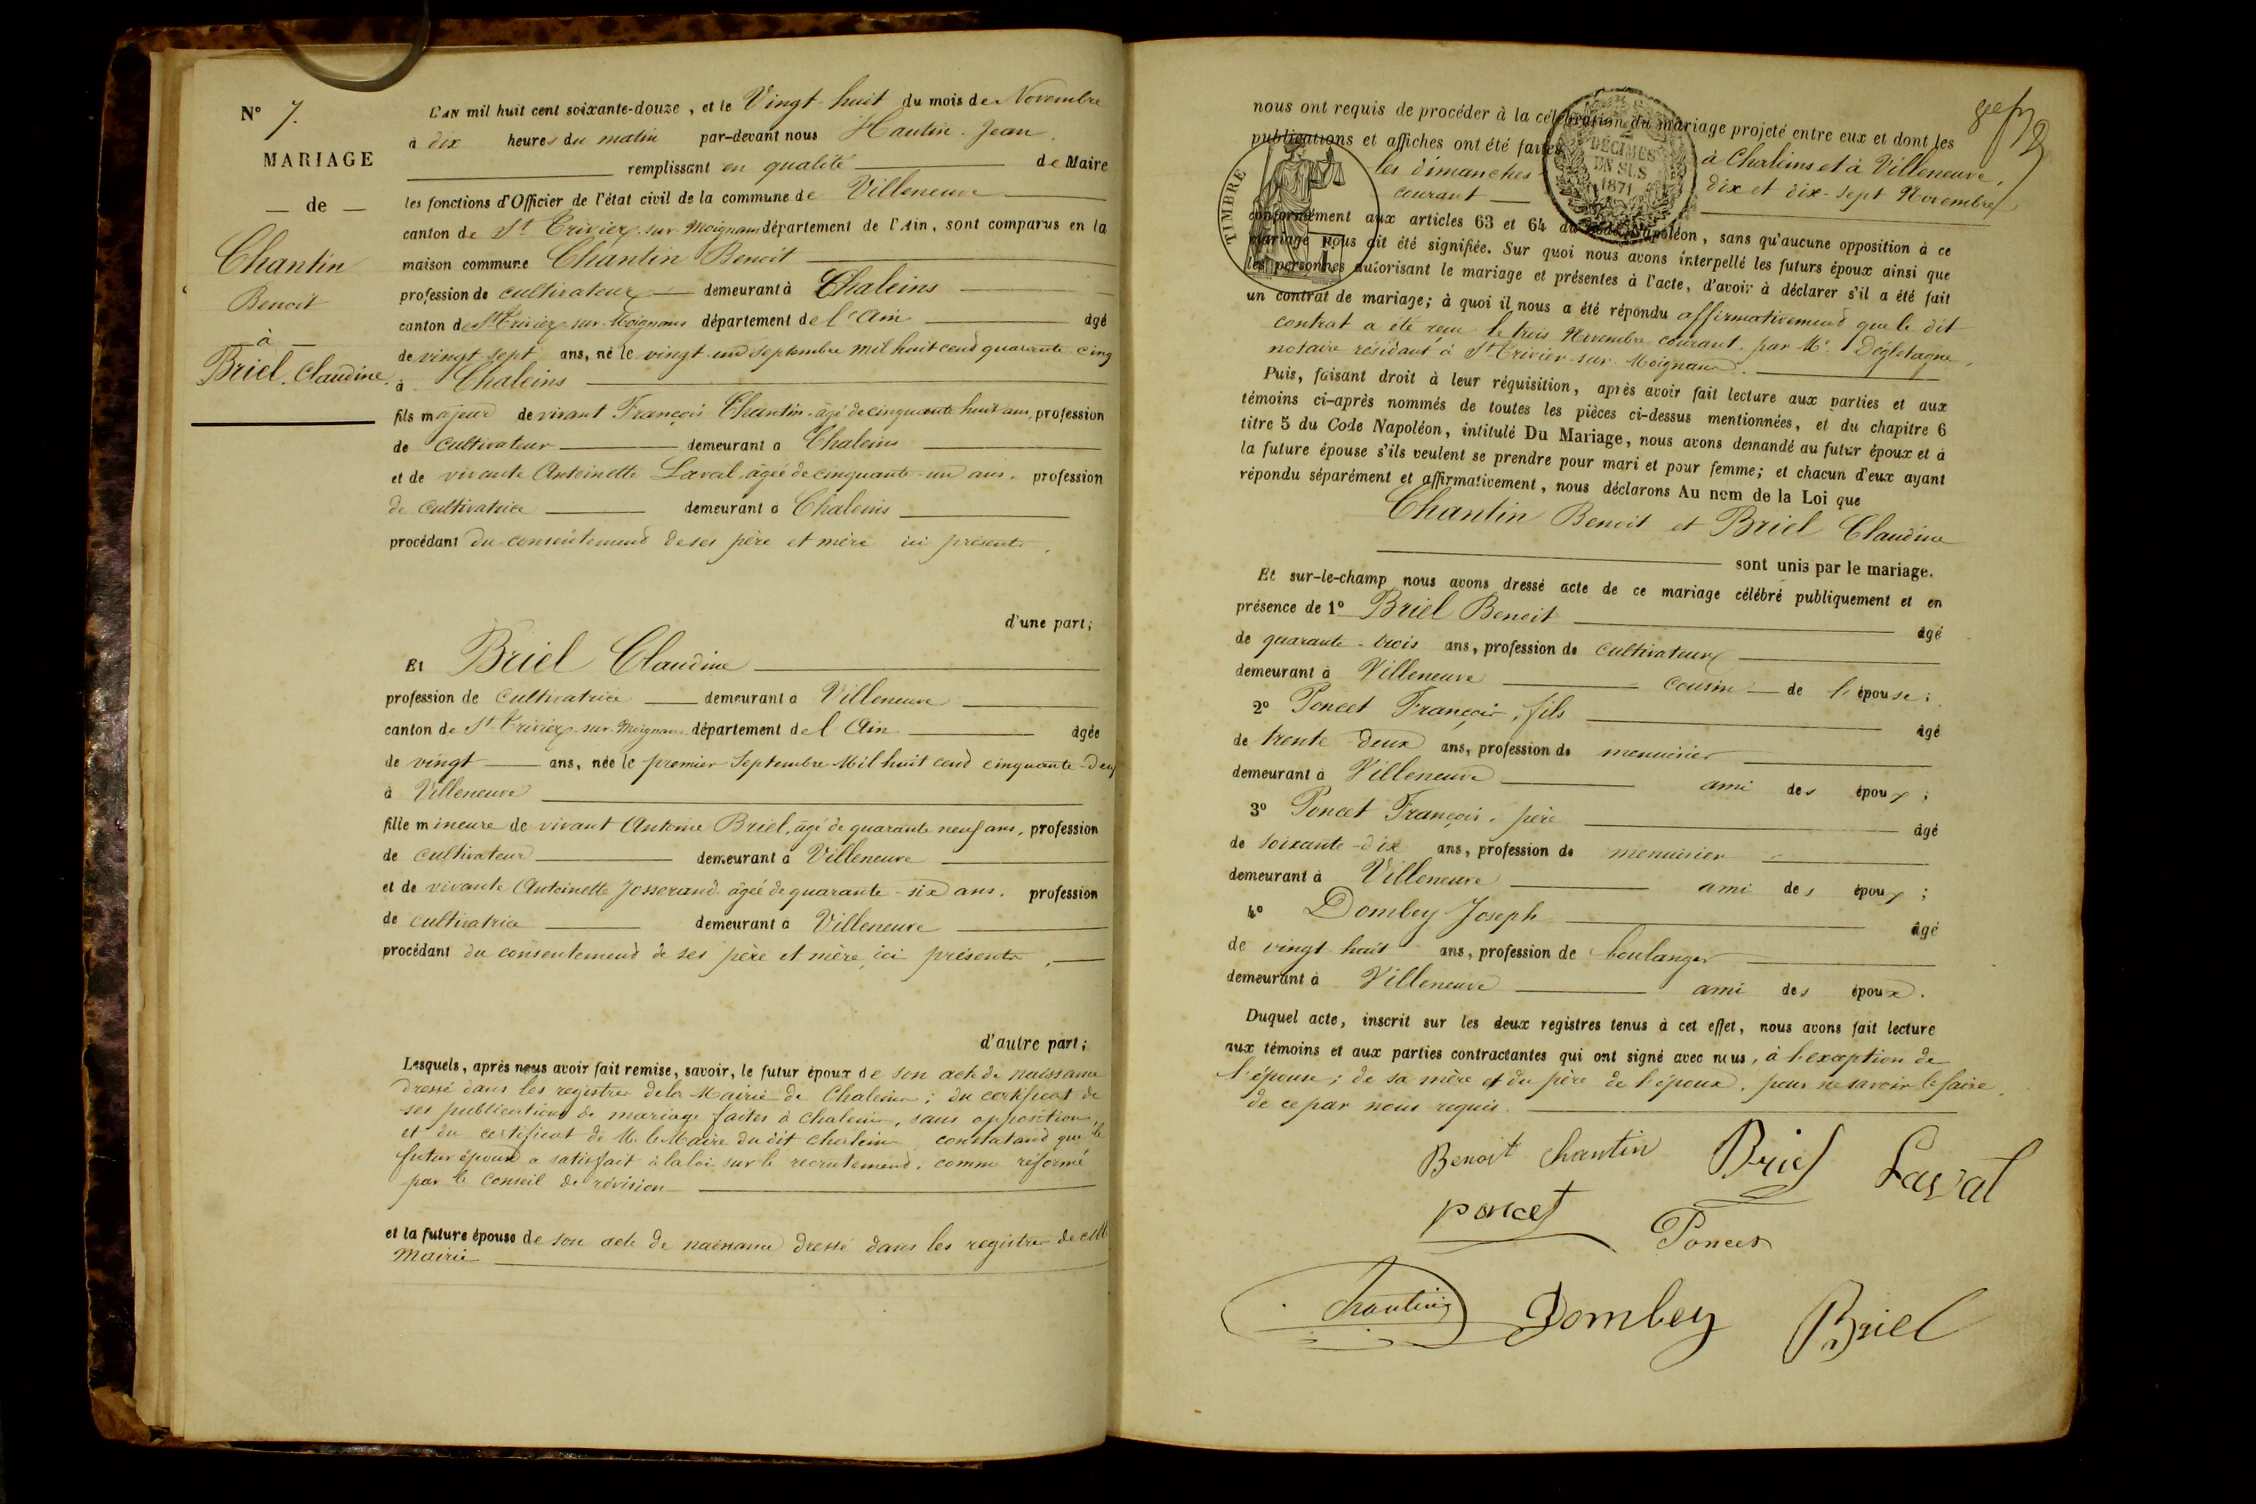 N° 7.
MARIAGE
— de —
Chantin
Benoit
— à —
Briel. Claudine.
L'AN mil huit cent soixante-douze, et le Vingt-huit du mois de Novembre
à dix heures du matin par-devant nous Hautin. Jean.
remplissant en qualité de Maire
les fonctions d'Officier de l'état civil de la commune de Villeneuve
canton de St Trivier-sur-Moignans département de l'Ain, sont comparus en la
maison commune Chantin Benoit
profession de cultivateur demeurant à Chaleins
canton de St Trivier-sur-Moignans département de l'Ain âgé
de vingt sept ans, né le vingt-un septembre mil huit cend quarante cinq
à Chaleins
fils majeur de vivant François Chantin, âgé de cinquante huit ans, profession
de cultivateur demeurant à Chaleins
et de vivante Antoinette Laval, âgée de cinquante-un ans. profession
de cultivatrice demeurant à Chaleins
procédant du consentemend de ses père et mère ici présents.
d'une part;
Et Briel Claudine
profession de cultivatrice demeurant à Villeneuve
canton de St Trivier-sur-Moignans département de l'Ain âgée
de vingt ans, née le premier Septembre Mil huit cend cinquante-deux
à Villeneuve
fille mineure de vivant Antoine Briel, âgé de quarante neuf ans, profession
de cultivateur demeurant à Villeneuve
et de vivante Antoinette Josserand âgée de quarante-six ans. profession
de cultivatrice demeurant à Villeneuve
procédant du consentemend de ses père et mère, ici présents.
d'autre part;
Lesquels, après nous avoir fait remise, savoir, le futur époux de son acte de naissance
dressé dans les registres de la Mairie de Chaleins; du certificat de
ses publications de mariage faites à Chaleins, sans opposition,
et du certificat de M. le Maire du dit Chaleins constatand que le
futur époux a satisfait à la loi sur le recrutemend, comme réformé
par le Conseil de révision
et la future épouse de son acte de naissance dressé dans les registres de cette
Mairie
nous ont requis de procéder à la célébration du mariage projeté entre eux et dont les
publications et affiches ont été faites à Chaleins et à Villeneuve,
les dimanches dix et dix-sept Novembre
courant
conformément aux articles 63 et 64 du Code Napoléon, sans qu'aucune opposition à ce
mariage nous ait été signifiée. Sur quoi nous avons interpellé les futurs époux ainsi que
les personnes autorisant le mariage et présentes à l'acte, d'avoir à déclarer s'il a été fait
un contrat de mariage; à quoi il nous a été répondu affirmativemend que le dit
contrat a été reçu le trois Novembre courant par Me
notaire résidant à St Trivier-sur-Moignans.
Puis, faisant droit à leur réquisition, après avoir fait lecture aux parties et aux
témoins ci-après nommés de toutes les pièces ci-dessus mentionnées, et du chapitre 6
titre 5 du Code Napoléon, intitulé Du Mariage, nous avons demandé au futur époux et à
la future épouse s'ils veulent se prendre pour mari et pour femme; et chacun d'eux ayant
répondu séparément et affirmativement, nous déclarons Au nom de la Loi que
Chantin Benoit et Briel Claudine
sont unis par le mariage.
Et sur-le-champ nous avons dressé acte de ce mariage célébré publiquement et en
présence de 1° Briel Benoit âgé
de quarante-trois ans, profession de cultivateur
demeurant à Villeneuve cousin de l'épouse;
2° Poncet François, fils âgé
de trente-deux ans, profession de menuisier
demeurant à Villeneuve ami des époux;
3° Poncet François, père âgé
de soixante-dix ans, profession de menuisier
demeurant à Villeneuve ami des époux;
4° Dombey Joseph âgé
de vingt-huit ans, profession de boulanger
demeurant à Villeneuve ami des époux.
Duquel acte, inscrit sur les deux registres tenus à cet effet, nous avons fait lecture
aux témoins et aux parties contractantes qui ont signé avec nous, à l'exception de
l'épouse; de sa mère et du père de l'époux, pour ne savoir le faire,
de ce par nous requis.
Benoit chantin Briel Laval
poncet Poncet
hautin Dombey Briel
TIMBRE
2
DÉCIMES
EN SUS
1871